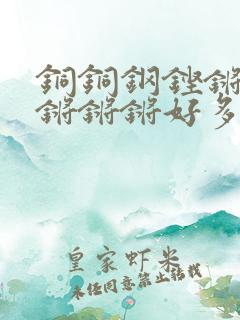 銅銅鋼鏗鏘
鏘鏘鏘好多
皇家虾米
未经同意禁止转载